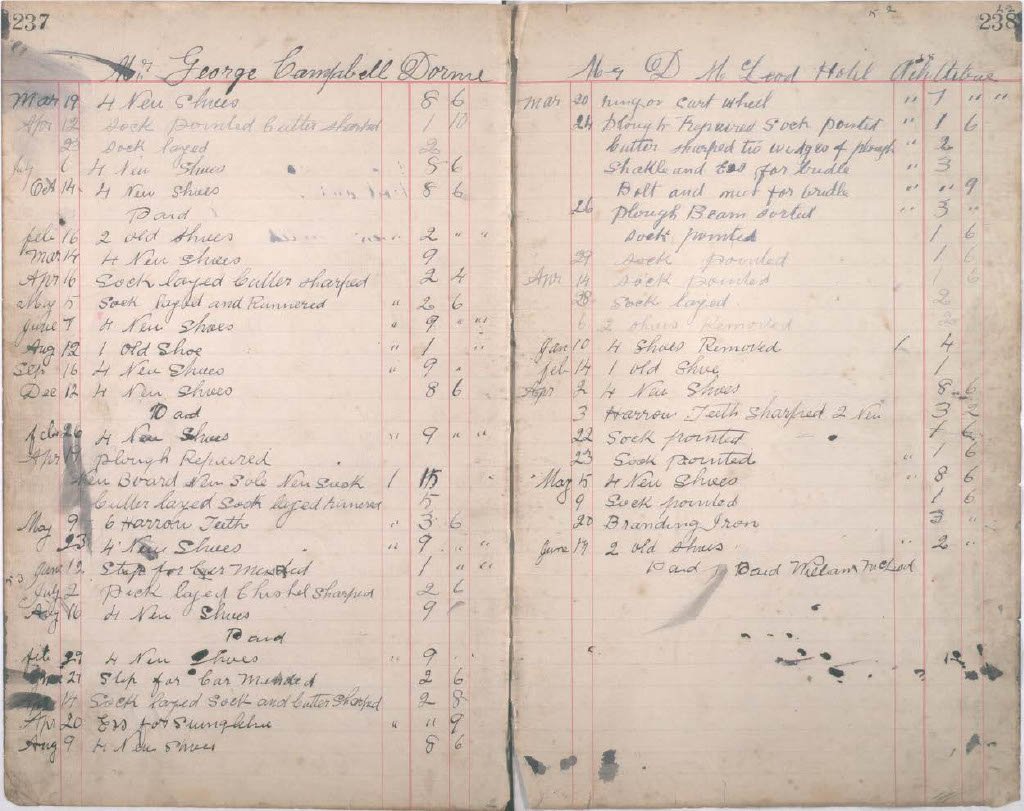 237
Mr George Campbell Dorme
Mar 19 4 New Shoes 8 6
Apr 12 Sock pointed Cutter sharped 1 10
23 Sock layed 2
6 4 New Shoes 8 6
Oct 14 4 New Shoes 8 6
Paid
feb 16 2 old Shoes " 2 " "
Mar 14 4 New Shoes 9
Apr 16 Sock layed Cutter sharped 2 4
May 5 Sock layed and Runnered " 2 6
June 7 4 New Shoes " 9 " "
Aug 12 1 Old Shoe " 1 "
Sep 16 4 New Shoes 9 "
Dec 12 4 New Shoes 8 6
Paid
feb 26 4 New Shoes " 9 " "
Apr 17 Plough Repaired
New Board New Sole New Sock 1 15
Cutter layed Sock layed 5
May 9 6 Harrow Teeth " 3 6
23 4 New Shoes " 9 " "
June 12 Step for Mended 1 " "
July 2 Pick layed Chishel Sharped 2 6
Aug 16 4 New Shoes 9
Paid
feb 29 4 New Shoes " 9
21 Step for Car Mended 2 6
14 Sock layed Sock and Cutter Sharped 2 8
Apr 20 for " " 9
Aug 9 4 New Shoes 8 6
238
Mr D McLeod Hotel
Mar 20 ring on Cart wheel " 7 " "
24 Plough Repaired Sock pointed " 1 6
Cutter sharped of plough " 2
Shakle and for bridle " 3
Bolt and for bridle " " 9
26 Plough Beam Sorted " 3 "
Sock pointed 1 6
29 Sock pointed 1 6
Apr 14 Sock pointed 1 6
28 Sock layed 2
6 2 Shoes Removed 2
Jan 10 4 Shoes Removed 4
feb 14 1 old Shoe 1
Apr 2 4 New Shoes 8 6
3 Harrow Teeth Sharped 2 New 3
22 Sock pointed
23 Sock Pointed " 1 6
May 5 4 New Shoes " 8 6
9 Sock pointed 1 6
20 Branding Iron 3 "
June 19 2 old Shoes " 2 "
Paid Paid William McLeod